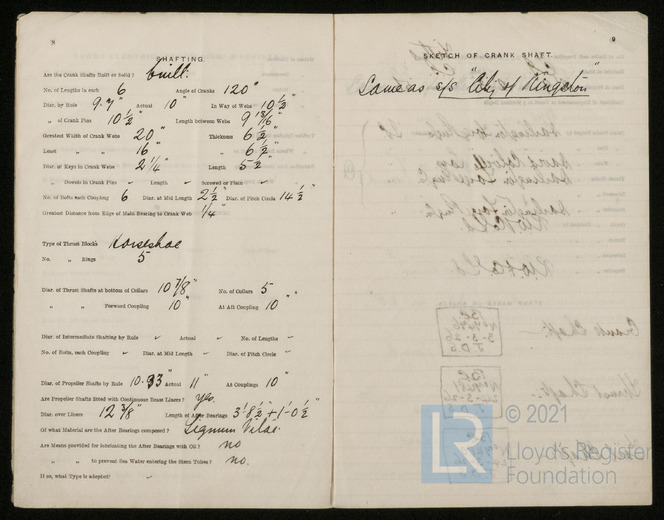 8
SHAFTING.
Are the Crank Shafts Built or Solid? built.
No. of Lengths in each 6 Angle of Cranks 120°
Diar. by Rule 9.7" Actual 10" In Way of Webs 10 1/2"
„ of Crank Pins 10 1/2" Length between Webs 9 13/16"
Greatest Width of Crank Webs 20" Thickness 6 1/2"
Least „ „ 16" „ 6 1/2"
Diar. of Keys in Crank Webs 2 1/4" Length 5 1/2"
„ Dowels in Crank Pins - Length - Screwed or Plain -
No. of Bolts each Coupling 6 Diar. at Mid Length 2 1/2" Diar. of Pitch Circle 14 1/2"
Greatest Distance from Edge of Main Bearing to Crank Web 1/4"
Type of Thrust Blocks Horseshoe
No. „ Rings 5
Diar. of Thrust Shafts at bottom of Collars 10 7/8" No. of Collars 5
„ „ Forward Coupling 10" At Aft Coupling 10"
Diar. of Intermediate Shafting by Rule - Actual - No. of Lengths -
No. of Bolts, each Coupling - Diar. at Mid Length - Diar. of Pitch Circle -
Diar. of Propeller Shafts by Rule 10.33" Actual 11" At Couplings 10"
Are Propeller Shafts fitted with Continuous Brass Liners? yes.
Diar. over Liners 12 3/8" Length of After Bearings 3'-8 1/2" + 1'-0 1/2"
Of what Material are the After Bearings composed? Lignum Vitae
Are Means provided for lubricating the After Bearings with Oil? no
„ „ to prevent Sea Water entering the Stern Tubes? no.
If so, what Type is adopted? -
9
SKETCH OF CRANK SHAFT.
Same as s/s "City of Kingston"
© 2021
Lloyd's Register
Foundation
LR